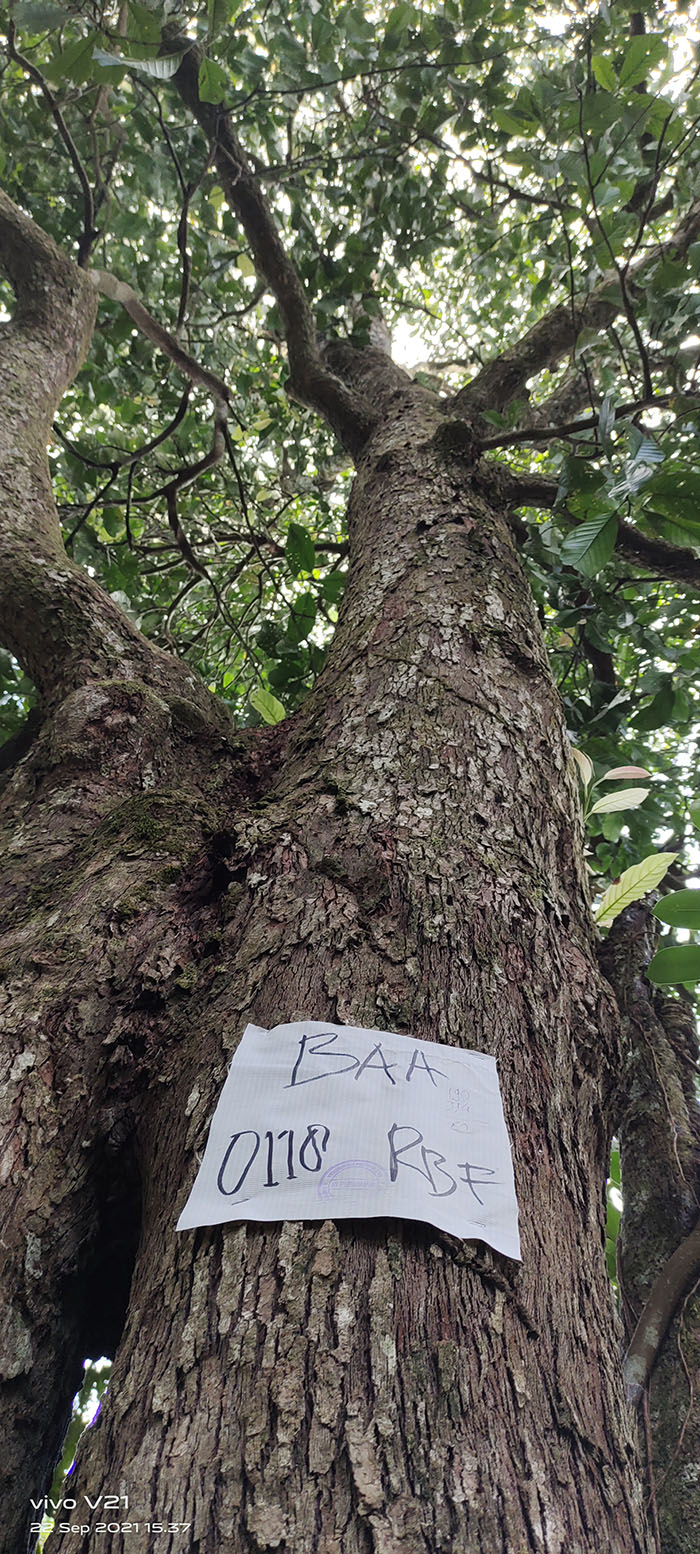 BAA
0118 RBF
vivo V21
22 Sep 2021 15.37